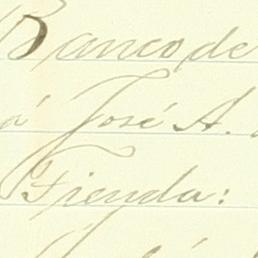 Banco de
á José A.
Tienda: